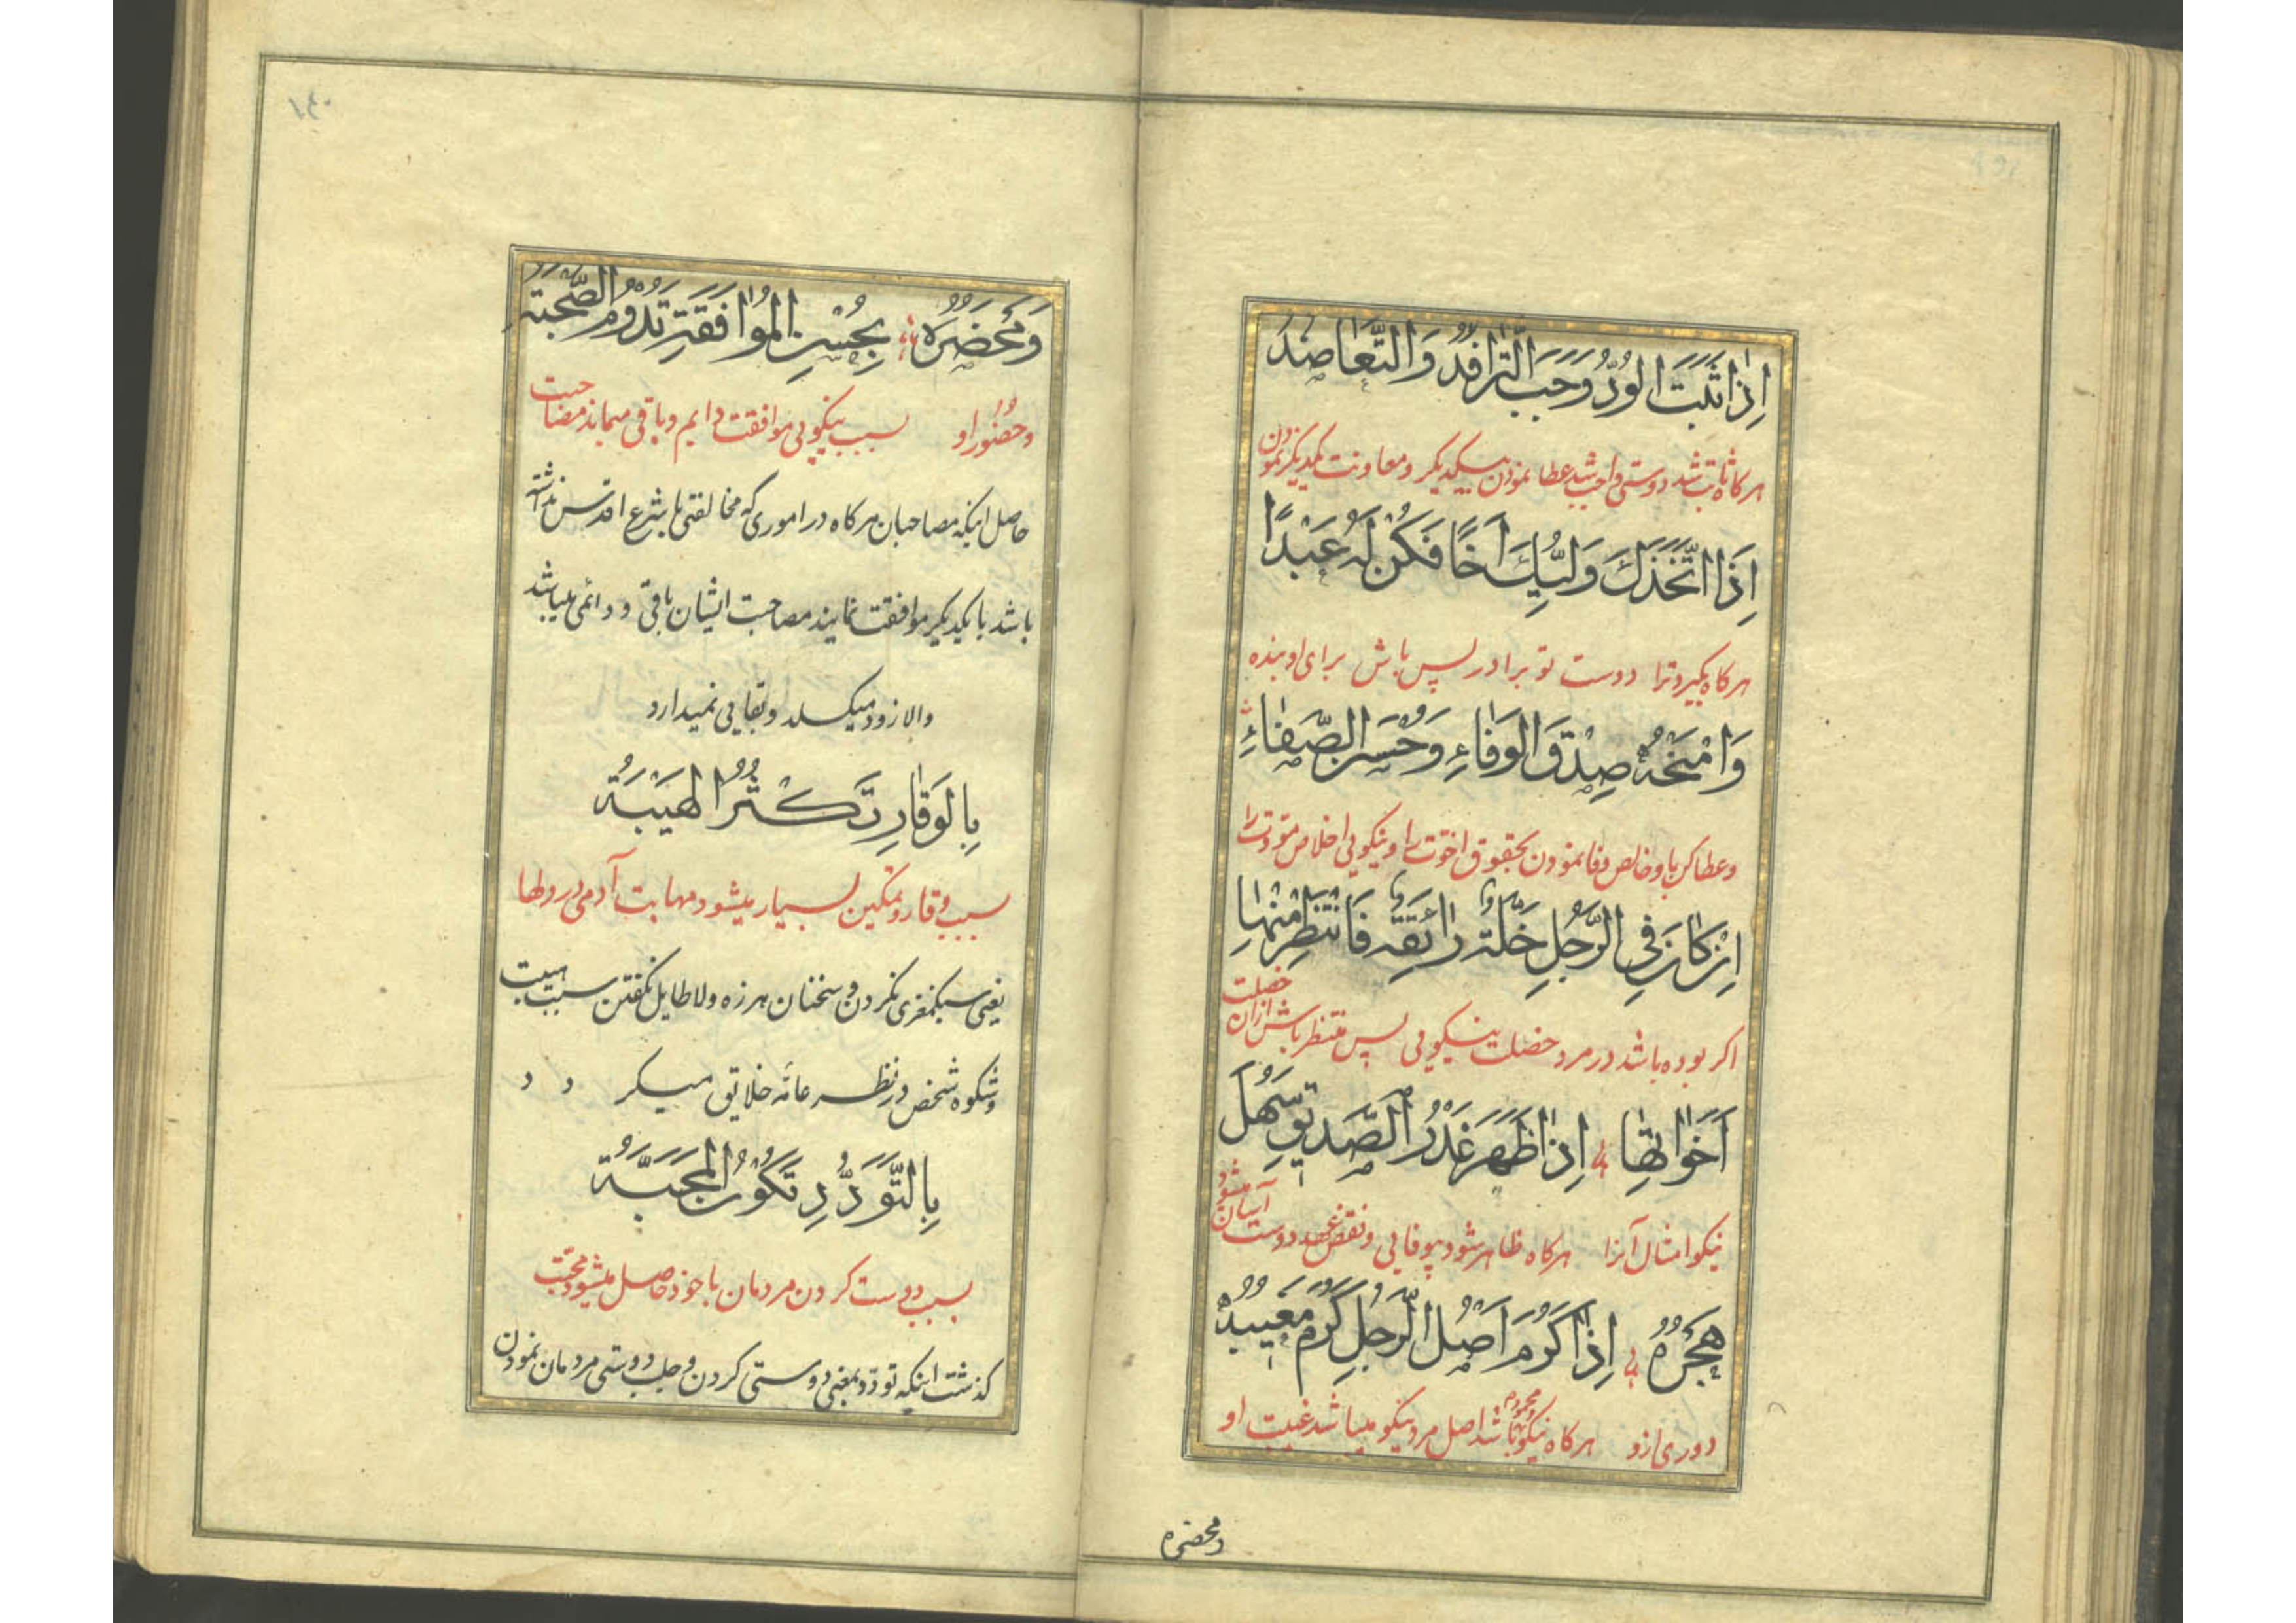 اِذٰا ثَبَتَ الوُدُّ وَجَبَ التَّرٰافُدُ وَالتَّعٰاضُدُ
هرکاه ثابت شد دوستی واجب شد عطا نمودن بیکدیکر و معاونت یکدیکر نمودن
اِذَا اتَّخَذَكَ وَلِيُّكَ اَخًا فَكُنْ لَهُ عَبْدًا
هرکاه بکیرد ترا دوست تو برادر پس باش برای او بنده
وَامْنَحْهُ صِدْقَ الوَفٰاءِ وَحُسْنَ الصَّفٰاءِ
وعطا کن باو خالص وفا نمودن بحقوق اخوت را و نیکویی اخلاص مودت را
اِنْ كٰانَ فِي الرَّجُلِ خَلَّةٌ رٰائِقَةٌ فَانْتَظِرْ مِنْهٰا
اکر بوده باشد در مرد خصلت نیکویی پس منتظر باش ازان خصلت
اَخَوٰاتِهٰا اِذٰا ظَهَرَ غَدْرُ الصَّدِيقِ سَهُلَ
نیکو امثال آنرا هرکاه ظاهر شود بیوفایی و نقض عهد دوست آسان میشود
هَجْرُهُ اِذٰا كَرُمَ اَصْلُ الرَّجُلِ كَرُمَ مَغِيبُهُ
دوری ازو هرکاه نیکو باشد اصل مرد نیکو میباشد غیبت او
ومحضره
١٤٠
وَمَحْضَرُهُ بِحُسْنِ المُوٰافَقَةِ تَدُومُ الصُّحْبَةُ
وحضور او بسبب نیکویی موافقت دایم و باقی میماند مصاحبت
حاصل اینکه مصاحبان هرکاه در اموری که مخالفتی با شرع اقدس نداشته
باشد با یکدیکر موافقت نمایند مصاحبت ایشان باقی و دائمی میباشد
والا زود میکسلد و بقایی نمیدارد
بِالوَقٰارِ تَكْثُرُ الهَيْبَةُ
بسبب وقار و تمکین بسیار میشود مهابت آدمی در دلها
یعنی سبکمغزی نکردن و سخنان هرزه و لاطایل نکفتن سبب هیبت
وشکوه شخص در نظر عامّه خلایق میکردد
بِالتَّوَدُّدِ تَكُونُ المَحَبَّةُ
بسبب دوست کردن مردمان با خود حاصل میشود محبّت
کذشت اینکه تودّد بمعنی دوستی کردن و جلب دوستی مردمان نمودن